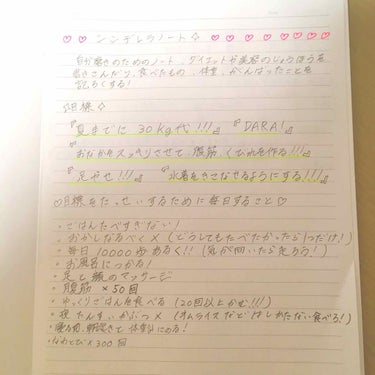 ♡♡ シンデレラノート ◇ ♡♡♡♡♡♡♡♡
自分磨きのためのノート、ダイエットや美容のじょうほうを
書きこんだり、食べたもの、体重、がんばったことを
記ろくする!
◇目標◇
『夏までに 30kg代!!!』 『DARA!』
『おなかをスッキリさせて、腹筋、くびれを作る!!!』
『足やせ!!!』 『水着をきこなせるようにする!!!』
♡目標をたっせいするために毎日すること♡
・ごはんたべすぎない!
・おかしなるべく× (どうしてもたべたかったら1つだけ!)
・毎日10000歩あるく!! (気が向いたら走ろう!)
・お風呂につかる!
・足と腕のマッサージ
・腹筋×50回
・ゆっくりごはんを食べる (20回以上かむ!!!)
・夜 たんすいかぶつ× (オムライスなどはしかたない食べる!)
・寝る前、朝起きて 体重計にのる!
・なわとび×300回